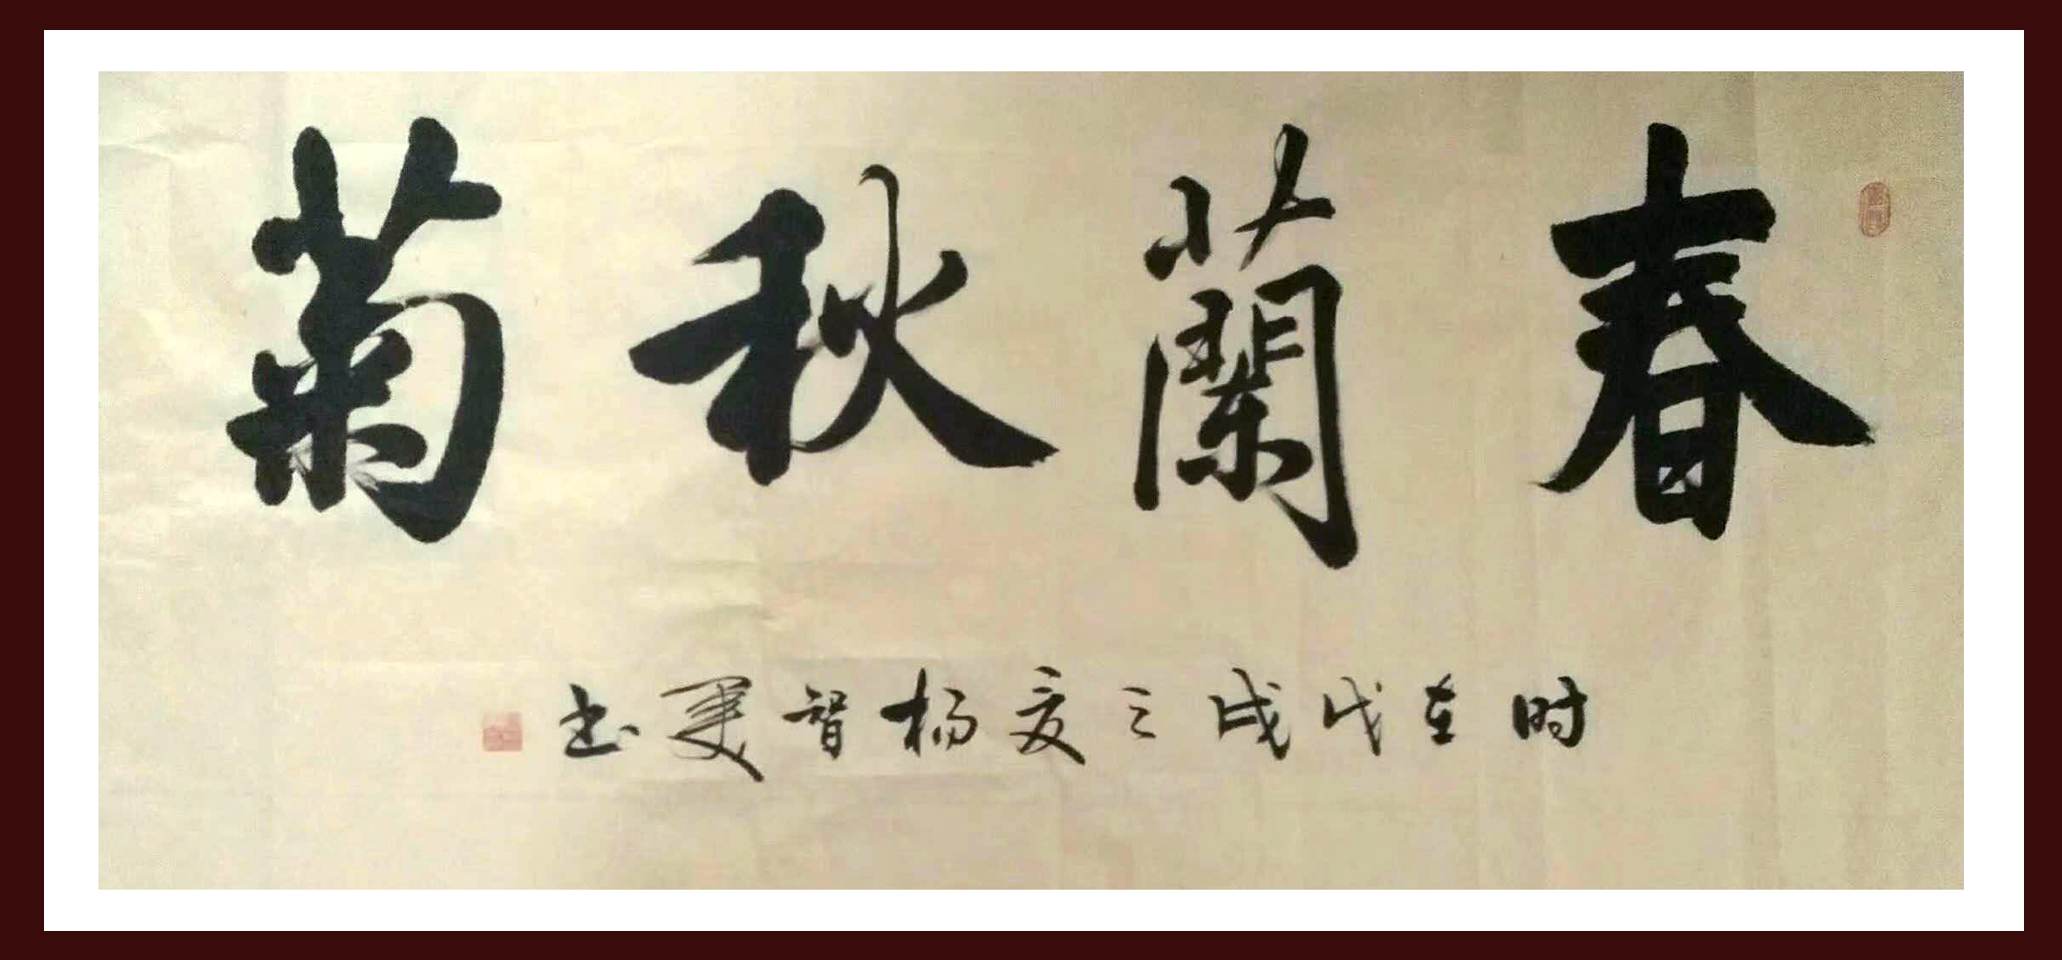 春蘭秋菊
时在戊戌之夏杨智美书